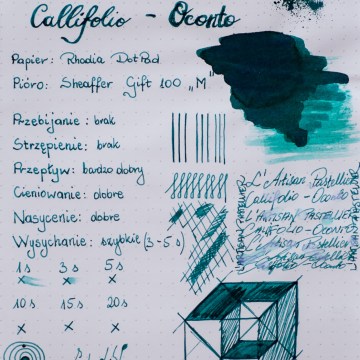 Callifolio - Oconto
Papier: Rhodia DotPad
Pióro: Sheaffer Gift 100 „M"
Przebijanie: brak
Strzępienie: brak
Przepływ: bardzo dobry
Cieniowanie: dobre
Nasycenie: dobre
Wysychanie: szybkie (3-5s)
1s 3s 5s
10s 15s 20s
x x x
L'Artisan Pastellier
Callifolio - Oconto
L'Artisan Pastellier
Callifolio - Oconto
L'Artisan Pastellier